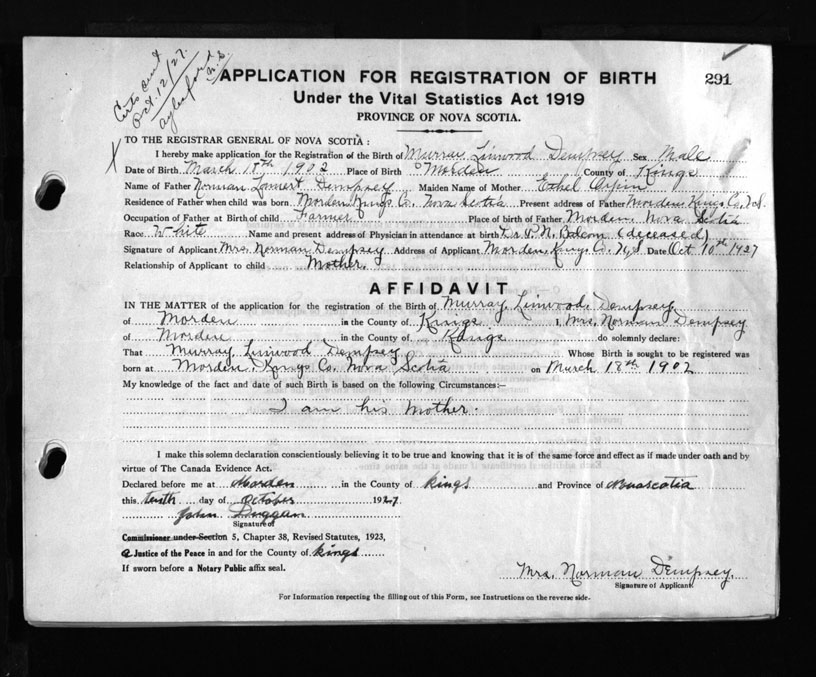 Certs sent
Oct. 12/27.
Aylesford
N.S.
APPLICATION FOR REGISTRATION OF BIRTH
291
Under the Vital Statistics Act 1919
PROVINCE OF NOVA SCOTIA.
X TO THE REGISTRAR GENERAL OF NOVA SCOTIA :
I hereby make application for the Registration of the Birth of Murray Linwood Dempsey Sex Male
Date of Birth March 18th 1902 Place of Birth Morden County of Kings
Name of Father Norman Dempsey Maiden Name of Mother Ethel
Residence of Father when child was born Morden Kings Co. Nova Scotia Present address of Father Morden Kings Co, N.S.
Occupation of Father at Birth of child Farmer Place of birth of Father Morden, Nova Scotia
Race White Name and present address of Physician in attendance at birth Dr. P.N. Balcom (deceased)
Signature of Applicant Mrs. Norman Dempsey Address of Applicant Morden, Kings Co. N.S. Date Oct 10th 1927
Relationship of Applicant to child Mother.
AFFIDAVIT
IN THE MATTER of the application for the registration of the Birth of Murray Linwood Dempsey
of Morden in the County of Kings I, Mrs. Norman Dempsey
of Morden in the County of Kings do solemnly declare:
That Murray Linwood Dempsey Whose Birth is sought to be registered was
born at Morden, Kings Co. Nova Scotia on March 18th 1902
My knowledge of the fact and date of such Birth is based on the following Circumstances:–
I am his Mother.
I make this solemn declaration conscientiously believing it to be true and knowing that it is of the same force and effect as if made under oath and by
virtue of The Canada Evidence Act.
Declared before me at Morden in the County of Kings and Province of Novascotia
this tenth day of October 1927
John Duggan
Signature of
Commissioner under Section 5, Chapter 38, Revised Statutes, 1923,
a Justice of the Peace in and for the County of Kings
If sworn before a Notary Public affix seal.
Mrs. Norman Dempsey.
Signature of Applicant
For Information respecting the filling out of this Form, see Instructions on the reverse side.